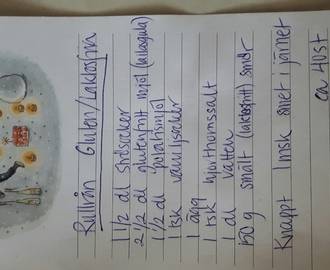 Rullrån Gluten/Laktosfria
1 1/2 dl strösocker
2 1/2 dl glutenfritt mjöl (allaglda)
1 1/2 dl potatismjöl
1 tsk vaniljsocker
1 ägg
1 tsk hjorthornssalt
1 dl vatten
150 g smält (laktosfritt) smör
Knappt 1 msk smet i järnet
ca 40 st